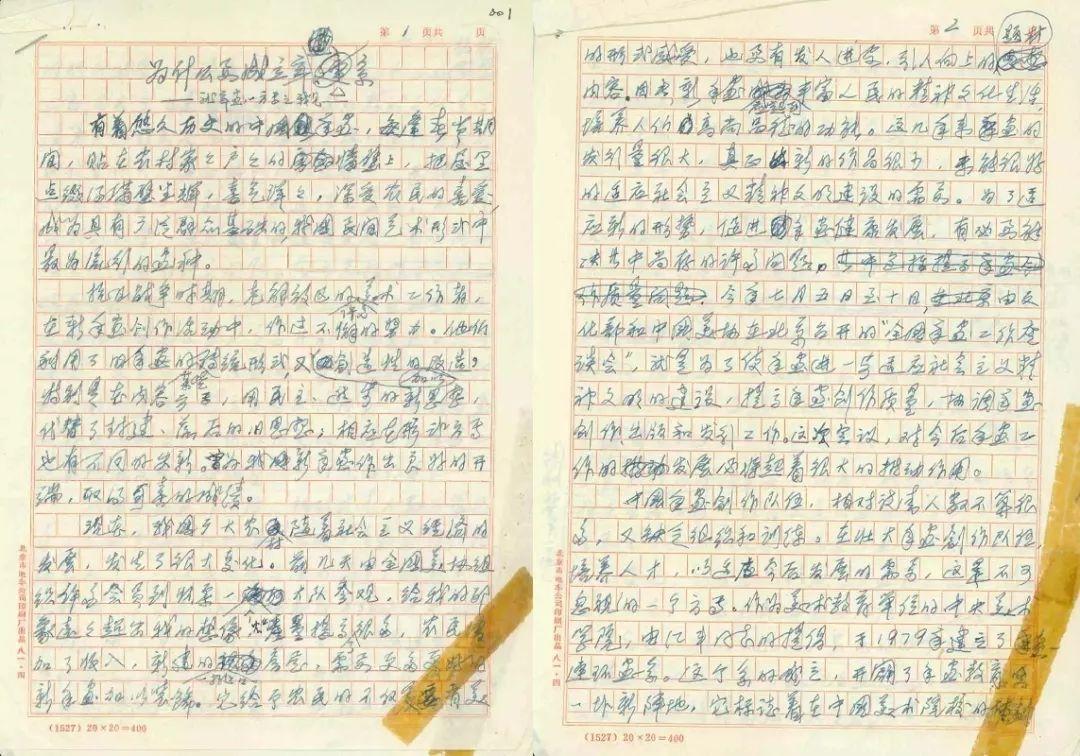 001
第1页共 页
为什么要成立年画系
有着悠久历史的中国年画，每逢春节期
间，贴在农村家家户户的墙壁上，把屋里
点缀得满壁生辉，喜气洋洋，深受农民的喜爱
成为具有广泛群众基础的，我国民间艺术形式中
最为流行的画种。
抗日战争时期，老解放区的美术工作者，
在新年画创作活动中，作过不懈的努力。他们
利用了旧年画的传统形式，又创造性的改造，
特别是在内容方面，用民主、科学的新思想，
代替了封建、落后的旧思想；相应在形式方面
也有不同的出新。为我国新年画作出良好的开
端，取得可喜的成绩。
现在，我国广大农村随着社会主义经济的
发展，发生了很大变化。前几天由全国美协组
织许多会员到 大队参观，给我的印
象
加了收入，新建的
新年画加以装饰。它给予农民的不仅要有美
北京市电车公司印刷厂出品 八一·四
(1527) 20×20=400
第2页共
题材
的形式感受，也要有发人进步，引人向上的
内容。因为，新年画 丰富人民的精神文化生活，
培养人们高尚品德的功能。这几年来年画的
发行量很大，真正 新的作品很少，未能很好
的适应社会主义精神文明建设的需要。为了适
应新的形势，促进年画健康发展，有必要解
决其中尚存的许多问题。
今年七月五日至十日，由文
化部和中国美协在北京召开的“全国年画工作座
谈会”，就是为了使年画进一步适应社会主义精
神文明的建设，提高年画创作质量，协调年画
创作出版和发行工作。这次会议，对今后年画工
作的发展 起着很大的推动作用。
中国年画创作队伍，相对说来人数不算很
多，又缺乏组织和训练。在壮大年画创作队伍，
培养人才，以适应今后发展的需要，这是不可
忽视的一个方面。作为美术教育单位的中央美术
学院，由江丰同志的提倡，于1979年建立了年画、
连环画系。这个系的成立，开辟了年画教育
一块新阵地，它标志着在中国美术院校的
北京市电车公司印刷厂出品 八一·四
(1527) 20×20=400